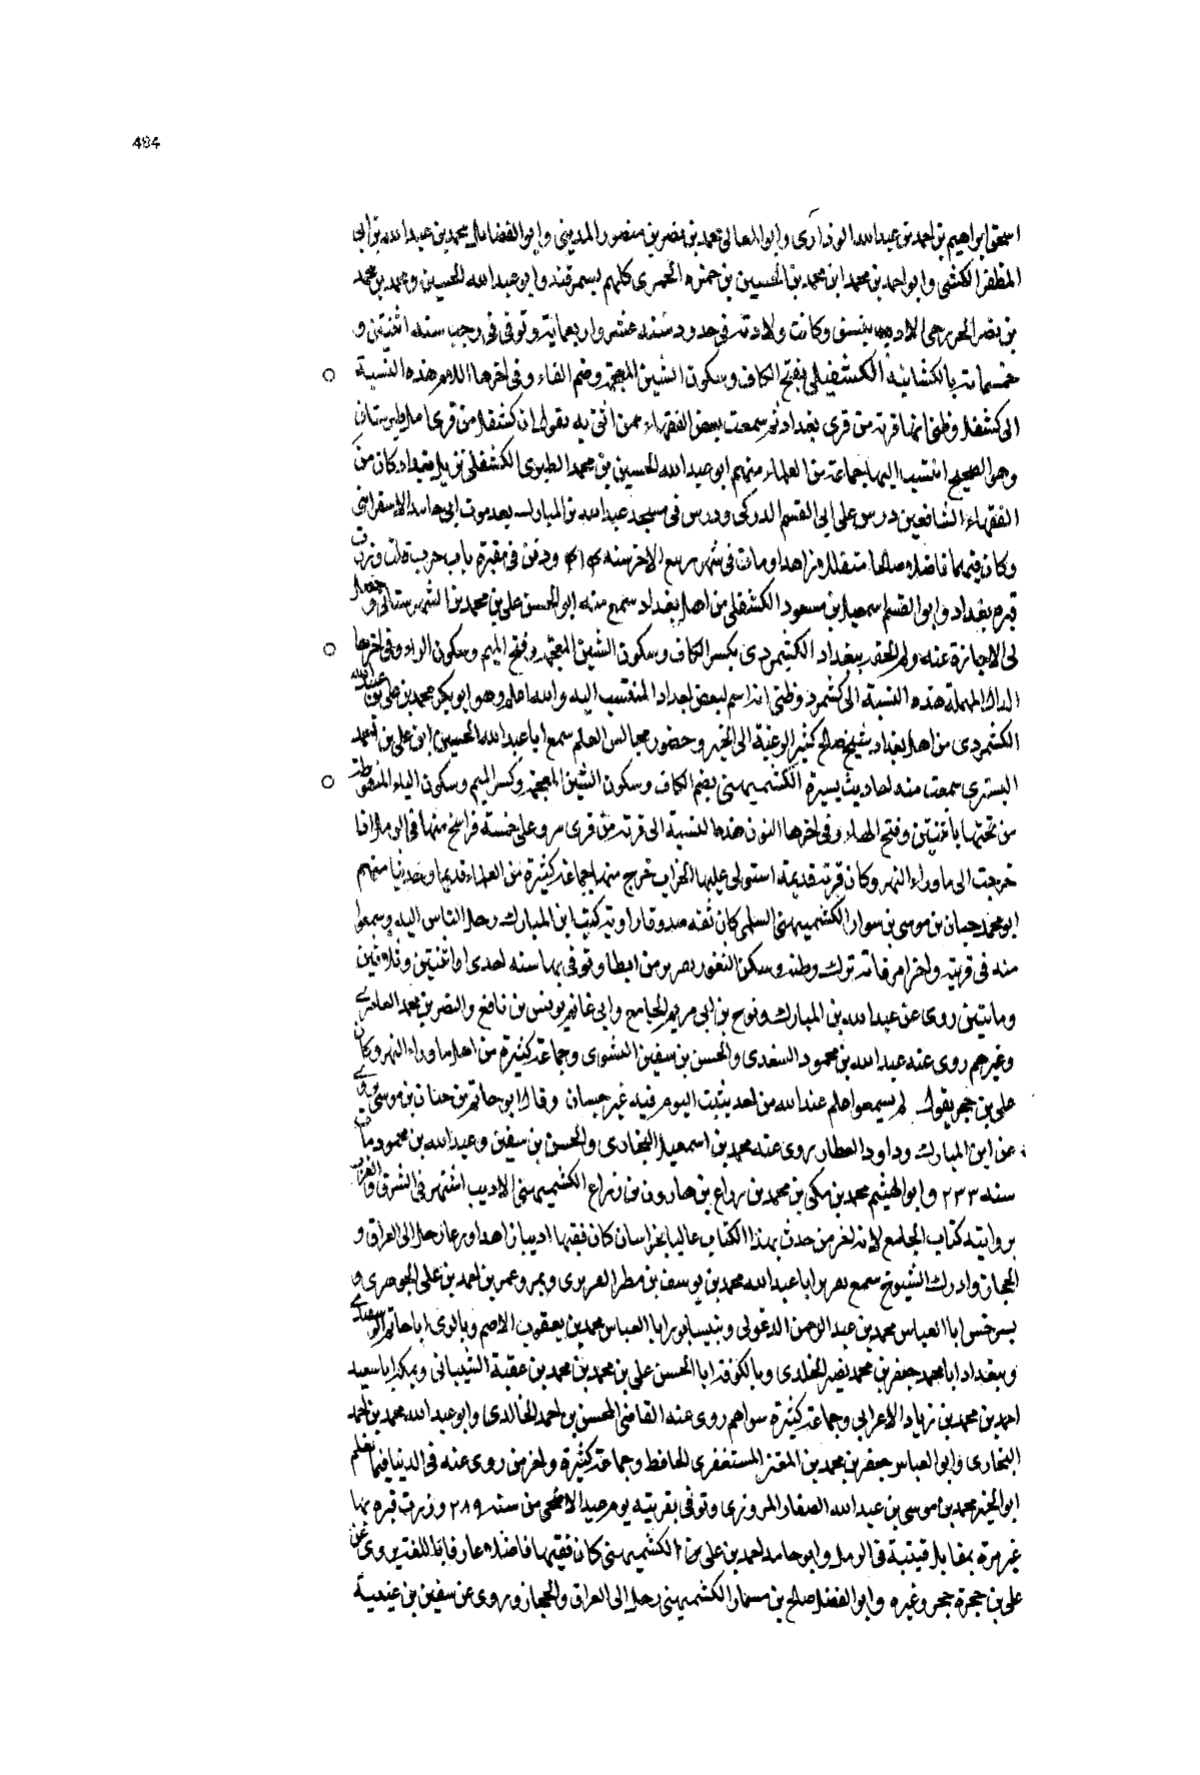 484
اسحق ابراهيم بن احمد بن عبدالله الوذارى وابو المعالى محمد بن نصر بن منصور المدينى وابو الفضائل محمد بن عبدالله بن ابى
المظفر الكشى وابو احمد بن محمد ابن محمد بن الحسين بن حمزه الحمرى كلهم بسمرقند وابو عبدالله الحسين ومحمد بن محمد
بن نصر الاديب بنسف وكانت ولادته فى حدود سنه عشر واربعمايه وتوفى فى رجب سنه اثنتين و
خمسمايه بالكشانيه الكشفلى بفتح الكاف وسكون الشين المعجمه وضم الفاء وفى اخرها اللام هذه النسبة
الى كشفل وظنى انها قريه من قرى بغداد ثم سمعت بعض الفقهاء ممن اثق به يقول ان كشفل من قرى امل طبرستان
وهو الصحيح انتسب اليها جماعة من العلماء منهم ابو عبدالله الحسين بن محمد الطبرى الكشفلى نزيل بغداد كان من
الفقهاء الشافعيين درس على ابى القسم الدركى ودرس فى مسجد عبدالله بن المبارك بعد موت ابى حامد الاسفراينى
وكان فهما فاضلا صالحا متقللا زاهدا ومات فى شهر ربيع الاخر سنه ۴۱۴ ودفن فى مقبرة باب حرب قلت وزرت
قبره ببغداد وابو القسم اسمعيل بن مسعود الكشفلى من اهل بغداد سمع منه ابو الحسن على بن محمد بن الشهرستانى وحصل
لى الاجازة عنه ولم الحقه ببغداد الكشمردى بكسر الكاف وسكون الشين المعجمه وفتح الميم وسكون الراء وفى اخرها
الدال المهملة هذه النسبة الى كشمرد وظنى انه اسم لبعض اجداد المنتسب اليه والله اعلم وهو ابو بكر محمد بن على بن عبدالله
الكشمردى من اهل بغداد شيخ صالح كثير الرغبة الى الخير وحضور مجالس العلم سمع ابا عبدالله الحسين ابن على بن احمد
البسرى سمعت منه احاديث يسيرة الكشميهنى بضم الكاف وسكون الشين المعجمه وكسر الميم وسكون الياء المنقوطه
من تحتها باثنتين وفتح الهاء وفى اخرها النون هذه النسبة الى قريه من قرى مرو على خمسة فراسخ منها فى الرمل اذا
خرجت الى ماوراء النهر وكان قرية قديمة استولى عليها الخراب خرج منها جماعة كثيرة من العلماء قديما وحديثا منهم
ابو محمد حبان بن موسى بن سوار الكشميهنى السلمى كان ثقه صدوقا راويه كتب ابن المبارك رحل الناس اليه وسمعوا
منه فى قريته واخر امر فاته ترك وطنه وسكن الثغور بموضع وتوفى بها سنه احدى او اثنتين وثلاثين
ومائتين روى عن عبدالله بن المبارك ونوح بن ابى مريم الجامع وابى غانم يونس بن نافع والنضر بن محمد العامرى
وغيرهم روى عنه عبدالله بن محمود السعدى والحسن بن سفين النسوى وجماعة كثيرة من اهل ماوراء النهر وكان
على بن حجر يقول لم يسمعوا علم عبدالله من احد يثبت اليوم فيه غير حبان وقال ابو حاتم بن حبان بن موسى يروى
عن ابن المبارك وداود العطار روى عنه محمد بن اسمعيل البخارى والحسن بن سفين وعبدالله بن محمود مات
سنه ۲۳۳ وابو الهيثم محمد بن مكى بن محمد بن زراع بن هارون بن زراع الكشميهنى الاديب اشتهر فى الشرق والغرب
بروايته كتاب الجامع لانه اخر من حدث بهذا الكتاب عاليا بخراسان كان فقيها اديبا زاهدا ورعا رحل الى العراق و
الحجاز وادرك الشيوخ سمع بفربر ابا عبدالله محمد بن يوسف بن مطر الفربرى وبمرو عمر بن احمد بن على الجوهرى و
بسرخس ابا العباس محمد بن عبد الرحمن الدغولى وبنيسابور ابا العباس محمد بن يعقوب الاصم وبالرى ابا حاتم
وببغداد ابا محمد جعفر بن محمد نصير الخلدى وبالكوفة ابا الحسن على بن محمد بن محمد بن عقبة الشيبانى وبمكه ابا سعيد
احمد بن محمد بن زياد الاعرابى وجماعة كثيرة سواهم روى عنه القاضى المحسن بن احمد الخالدى وابو عبدالله محمد بن احمد
البخارى وابو العباس جعفر بن محمد بن المعتز المستغفرى الحافظ وجماعة كثيرة واخر من روى عنه فى الدنيا فيما نعلم
ابو الخير محمد بن موسى بن عبدالله الصفار المروزى وتوفى بقريته يوم عيد الاضحى من سنه ۲۸۹ وزرت قبره بها
غير مرة بمقابل قبته فى الرمل وابو حامد احمد بن على الكشميهنى كان فقيها فاضلا عارفا باللغة يروى عن
على بن حجر وغيره وابو الفضل صالح بن مسمار الكشميهنى رحل الى العراق والحجاز وروى عن سفين بن عيينة